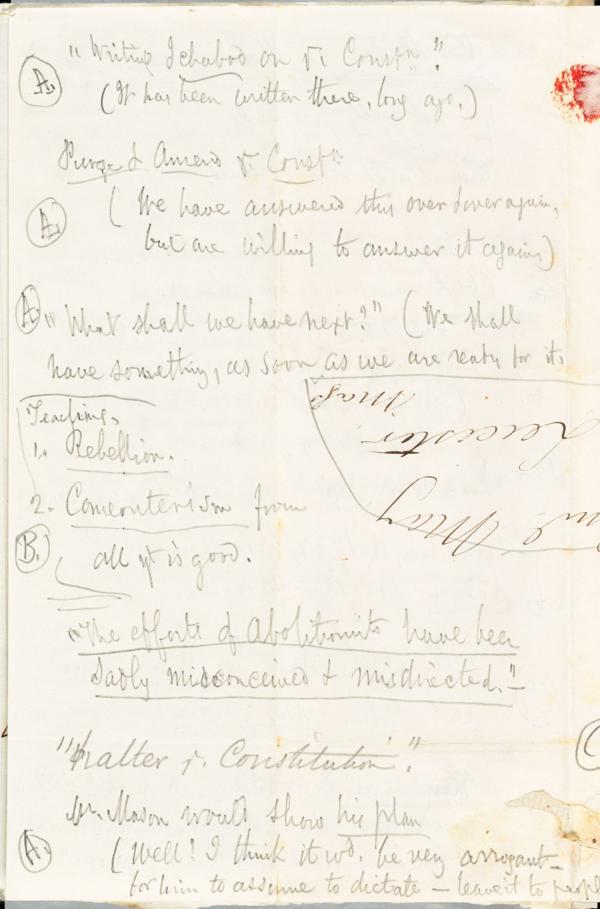 "Writing Ichabod on ye. Constn."
A.
(It has been written there, long ago.)
Purge & Amend ye. Constn.
A.
(We have answered this over & over again,
but are willing to answer it again)
A.
"What shall we have next?" (We shall
have something, as soon as we are ready for it.
Teaching.
1. Rebellion.
2. Comeouterism from
B.
all yt is good.
"The efforts of Abolitionists have been
sadly misconceived & misdirected."
"halter ye. Constitution".
Mr. Mason would show his plan
A.
(Well! I think it wd. be very arrogant
for him to assume to dictate — leave it to people
May
Leicester
Mass